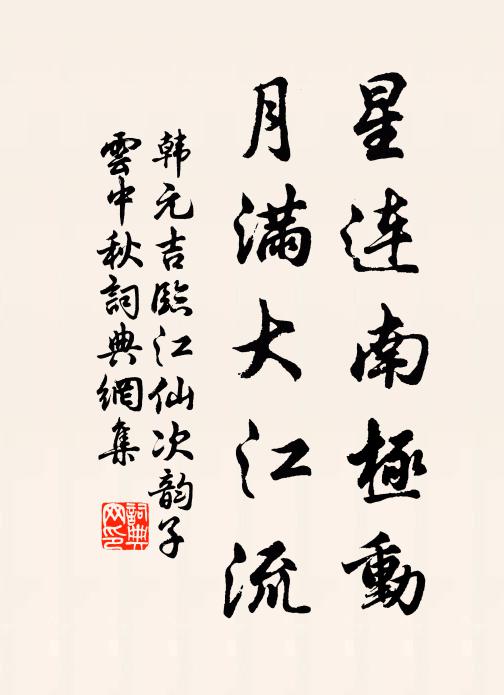 星連南極動
月满大江流
韩元吉臨江仙次韵子
雲中秋詞典網集
詞典
网印